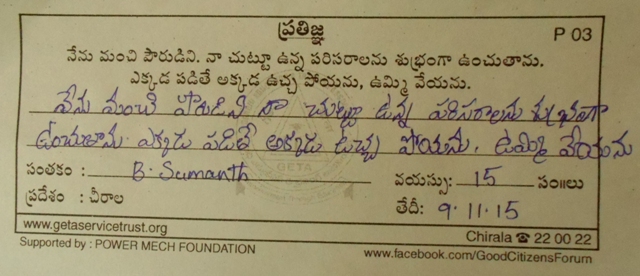 ప్రతిజ్ఞ P 03
నేను మంచి పౌరుడిని. నా చుట్టూ ఉన్న పరిసరాలను శుభ్రంగా ఉంచుతాను.
ఎక్కడ పడితే అక్కడ ఉచ్చ పోయను, ఉమ్మి వేయను.
నేను మంచి పౌరుడిని నా చుట్టూ ఉన్న పరిసరాలను శుభ్రంగా
ఉంచుతాను. ఎక్కడు పడితే అక్కడు ఉచ్చ పోయను. ఉమ్మి వేయను
సంతకం : B. Sumanth వయస్సు: 15 సం॥లు
ప్రదేశం : చీరాల తేదీ: 9.11.15
www.getaservicetrust.org Chirala ☎ 22 00 22
Supported by : POWER MECH FOUNDATION www.facebook.com/GoodCitizensForum
GETA